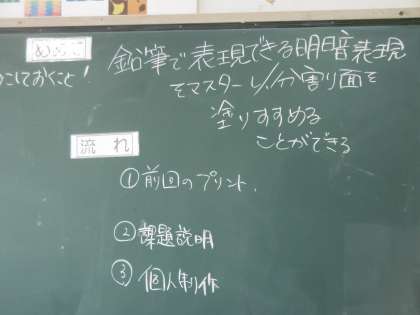 めあて
鉛筆で表現できる明暗表現
をマスターし、分割り面を
塗りすすめる
ことができる
こしておくこと!
流れ
①前回のプリント.
②課題説明
③個人制作